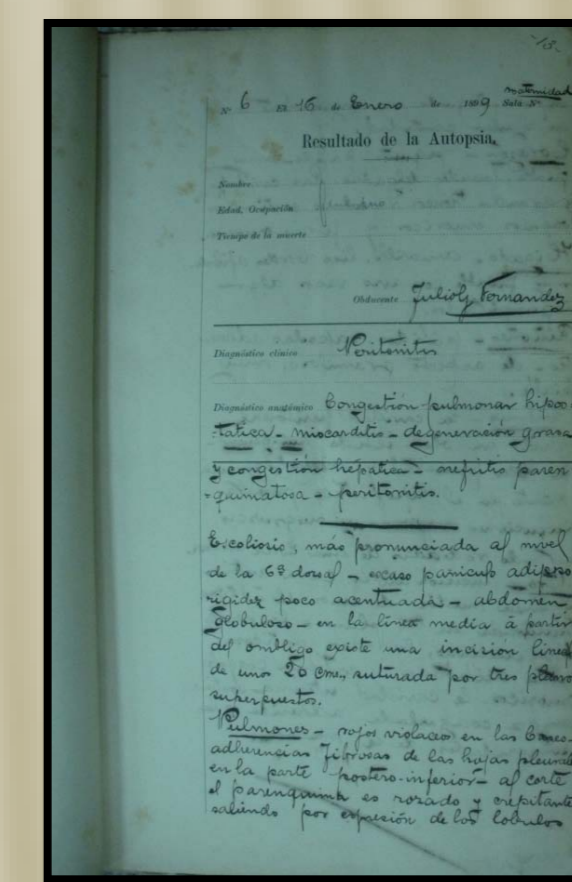 13.
Nº 6 El 16 de Enero de 1899 Sala Nº maternidad
Resultado de la Autopsia.
Nombre
Edad, Ocupación
Tiempo de la muerte
Obducente Julio G. Fernandez
Diagnóstico clínico Peritonitis
Diagnóstico anatómico Congestión pulmonar hipos-
=tatica - miocarditis - degeneración grasa
y congestión hepatica - nefritis paren
=quimatosa - peritonitis.
Escoliosis, más pronunciada al nivel
de la 6ª dorsal - escaso paniculo adiposo
rigidez poco acentuada - abdomen
globuloso - en la línea media á partir
del ombligo existe una incision lineal
de unos 20 cm., suturada por tres planos
superpuestos.
Pulmones - rojos violaceos en las bases -
adherencias fibrosas de las hojas pleurale
en la parte postero-inferior - al corte
el parenquima es rosado y crepitante
saliendo por expresión de los lobulos